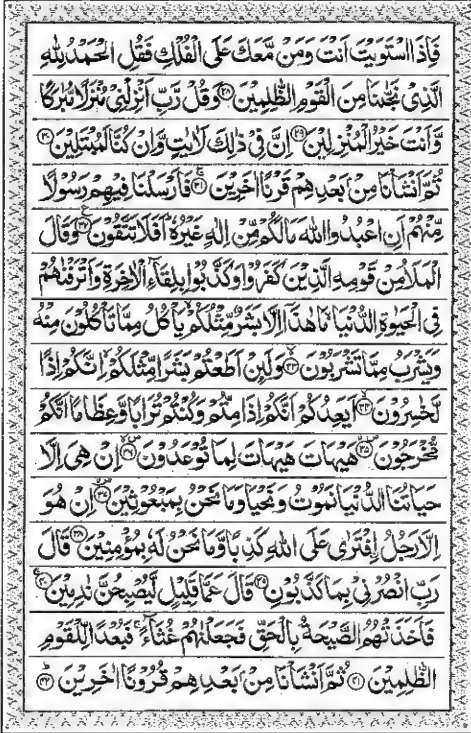 فَاِذَا اسْتَوَيْتَ اَنْتَ وَمَنْ مَّعَكَ عَلَى الْفُلْكِ فَقُلِ الْحَمْدُ لِلّٰهِ
الَّذِىْ نَجّٰىنَا مِنَ الْقَوْمِ الظّٰلِمِيْنَ ۝۲۸ وَقُلْ رَّبِّ اَنْزِلْنِىْ مُنْزَلًا مُّبٰرَكًا
وَّاَنْتَ خَيْرُ الْمُنْزِلِيْنَ ۝۲۹ اِنَّ فِىْ ذٰلِكَ لَاٰيٰتٍ وَّاِنْ كُنَّا لَمُبْتَلِيْنَ ۝۳۰
ثُمَّ اَنْشَاْنَا مِنْۢ بَعْدِهِمْ قَرْنًا اٰخَرِيْنَ ۝۳۱ فَاَرْسَلْنَا فِيْهِمْ رَسُوْلًا
مِّنْهُمْ اَنِ اعْبُدُوا اللّٰهَ مَا لَكُمْ مِّنْ اِلٰهٍ غَيْرُهٗ اَفَلَا تَتَّقُوْنَ ۝۳۲ وَقَالَ
الْمَلَاُ مِنْ قَوْمِهِ الَّذِيْنَ كَفَرُوْا وَكَذَّبُوْا بِلِقَآءِ الْاٰخِرَةِ وَاَتْرَفْنٰهُمْ
فِى الْحَيٰوةِ الدُّنْيَا مَا هٰذَآ اِلَّا بَشَرٌ مِّثْلُكُمْ يَاْكُلُ مِمَّا تَاْكُلُوْنَ مِنْهُ
وَيَشْرَبُ مِمَّا تَشْرَبُوْنَ ۝۳۳ وَلَئِنْ اَطَعْتُمْ بَشَرًا مِّثْلَكُمْ اِنَّكُمْ اِذًا
لَّخٰسِرُوْنَ ۝۳۴ اَيَعِدُكُمْ اَنَّكُمْ اِذَا مِتُّمْ وَكُنْتُمْ تُرَابًا وَّعِظَامًا اَنَّكُمْ
مُّخْرَجُوْنَ ۝۳۵ هَيْهَاتَ هَيْهَاتَ لِمَا تُوْعَدُوْنَ ۝۳۶ اِنْ هِىَ اِلَّا
حَيَاتُنَا الدُّنْيَا نَمُوْتُ وَنَحْيَا وَمَا نَحْنُ بِمَبْعُوْثِيْنَ ۝۳۷ اِنْ هُوَ
اِلَّا رَجُلُ اِفْتَرٰى عَلَى اللّٰهِ كَذِبًا وَّمَا نَحْنُ لَهٗ بِمُؤْمِنِيْنَ ۝۳۸ قَالَ
رَبِّ انْصُرْنِىْ بِمَا كَذَّبُوْنِ ۝۳۹ قَالَ عَمَّا قَلِيْلٍ لَّيُصْبِحُنَّ نٰدِمِيْنَ ۝۴۰
فَاَخَذَتْهُمُ الصَّيْحَةُ بِالْحَقِّ فَجَعَلْنٰهُمْ غُثَآءً فَبُعْدًا لِّلْقَوْمِ
الظّٰلِمِيْنَ ۝۴۱ ثُمَّ اَنْشَاْنَا مِنْۢ بَعْدِهِمْ قُرُوْنًا اٰخَرِيْنَ ۝۴۲